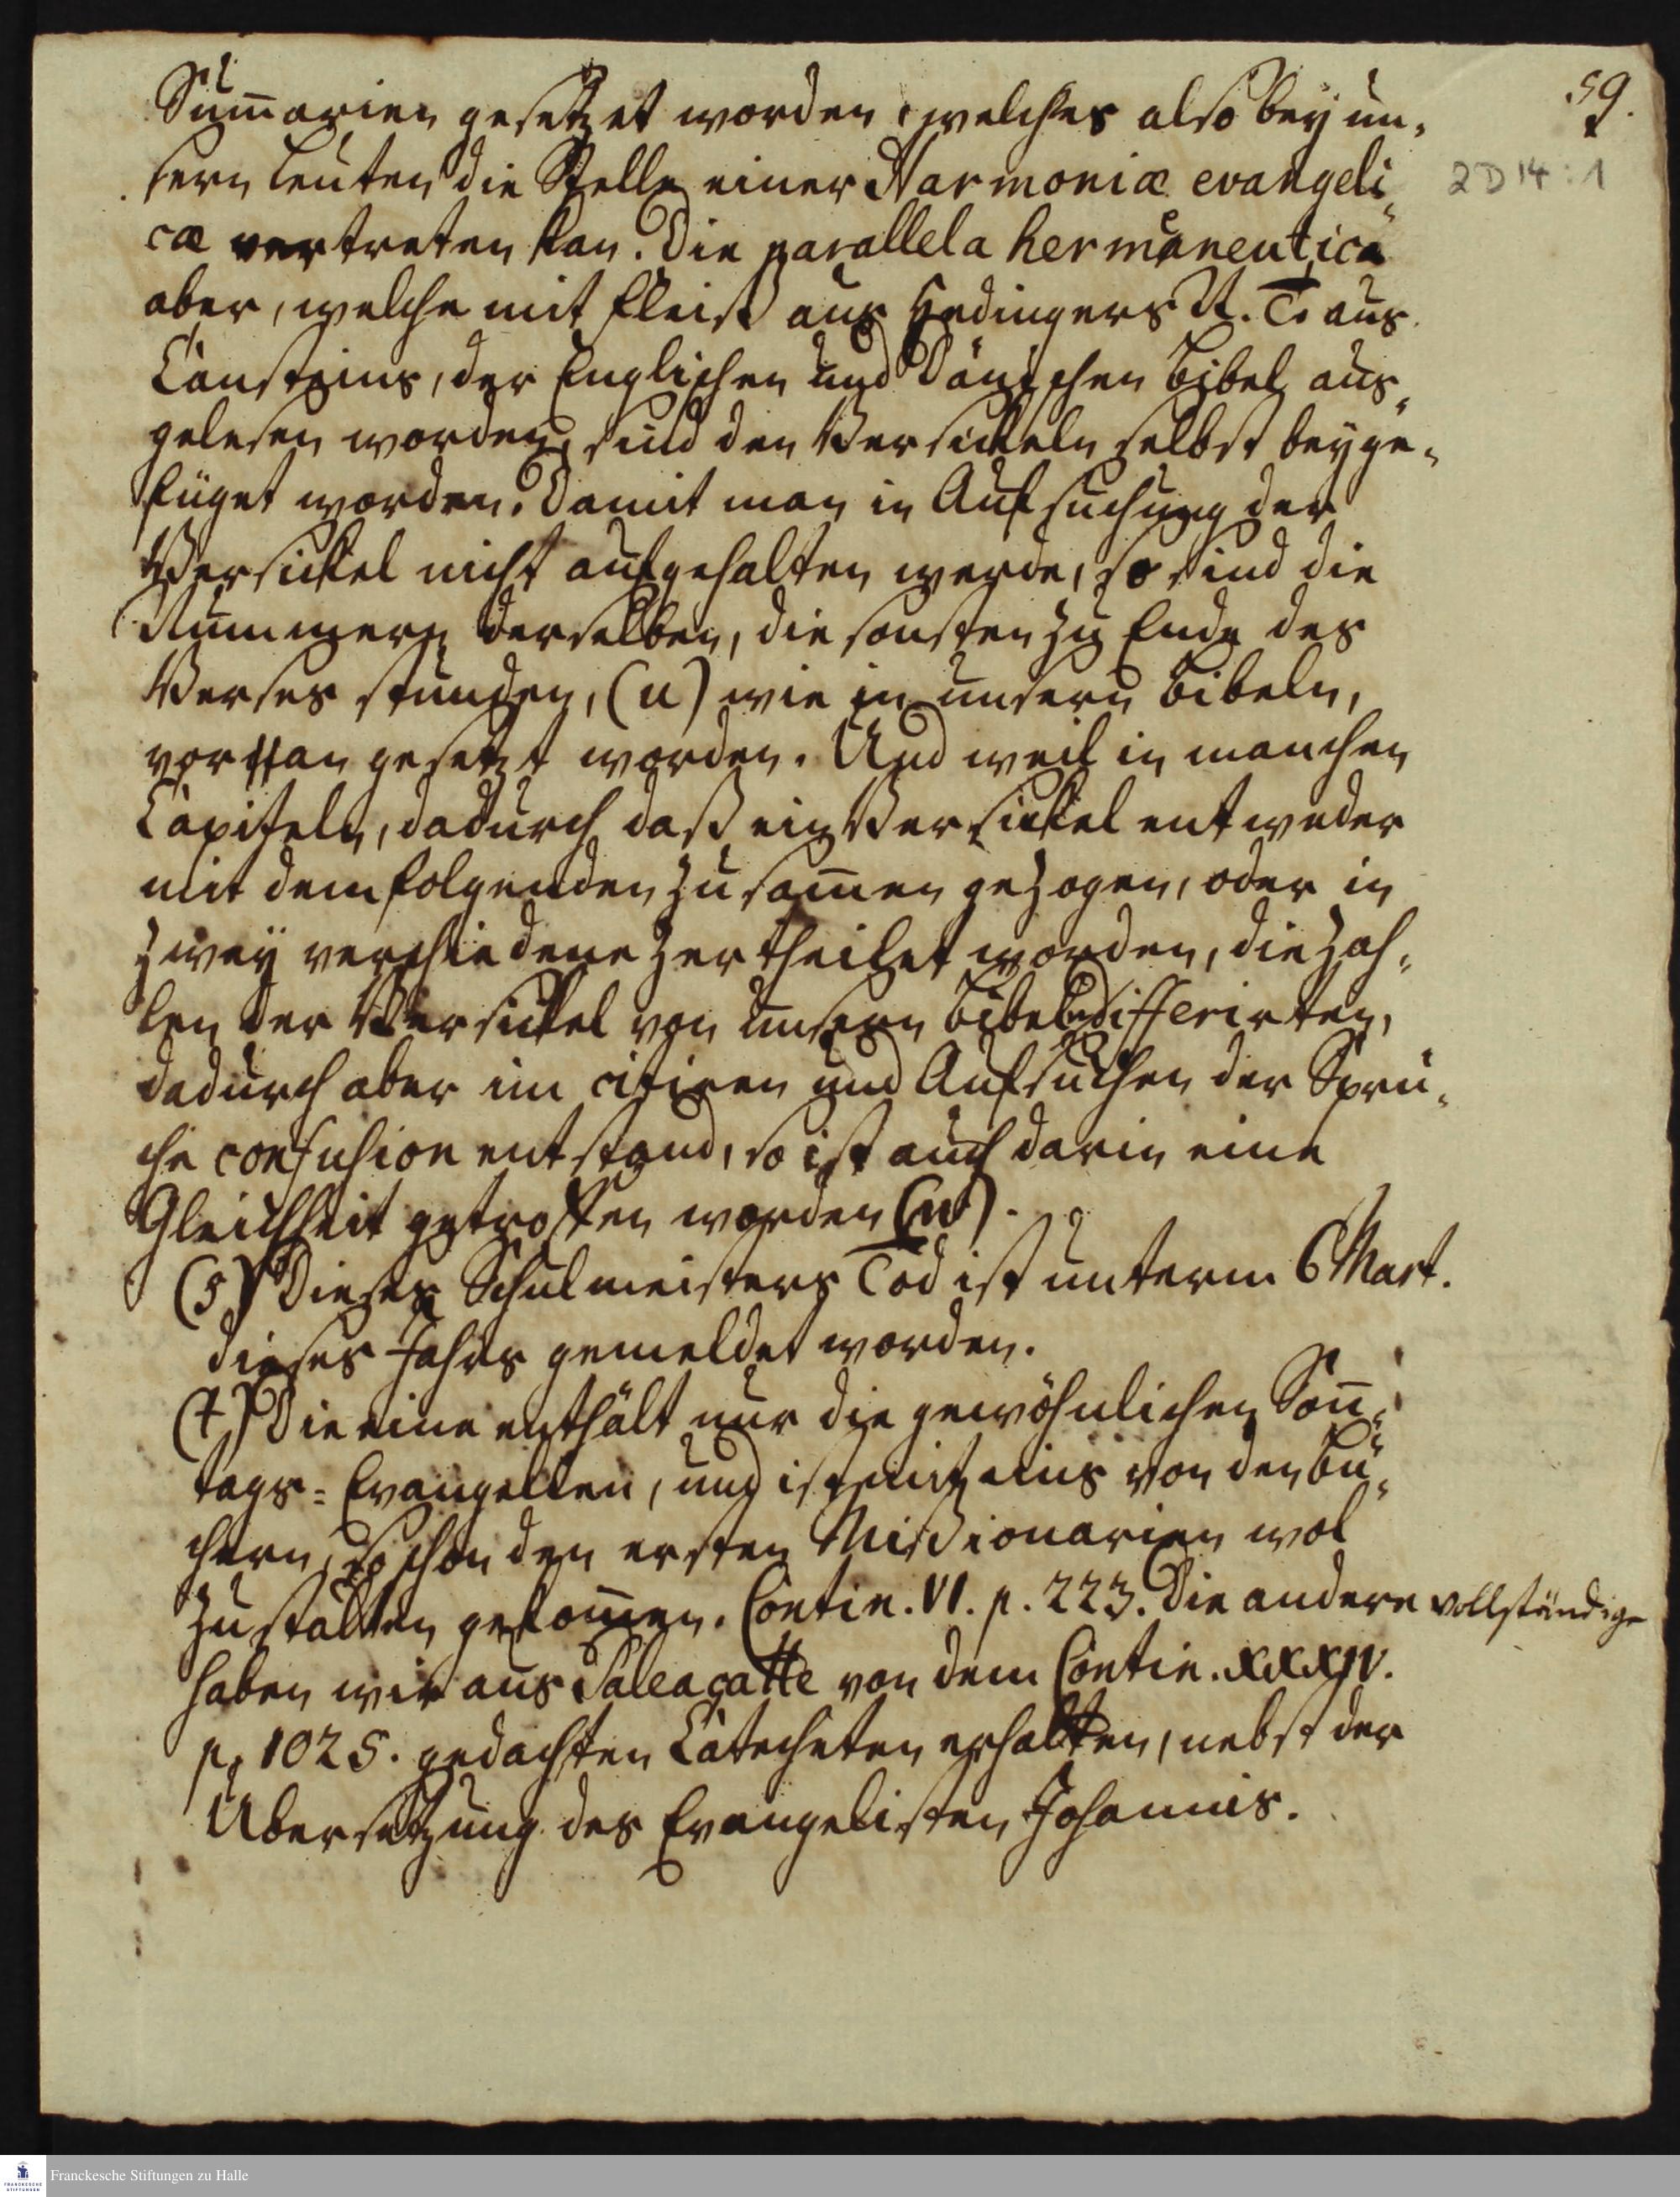 59.
2D14:1
Sum̄arien gesetzet worden, welches also bey un-
sern Leuten die Stelle einer Harmoniæ evangeli-
cæ vertreten kan. Die parallela hermeneutica
aber, welche mit Fleiß aus Hedingers N. T. aus
Cansteins, der Englischen und Dänischen Bibel aus-
gelesen worden, sind den Versickeln selbst beyge-
füget worden. Damit man in Aufsuchung der
Versickel nicht aufgehalten werde, so sind die
Nummern derselben, die sonsten zu Ende des
Verses stunden, (u) wie in unsern Bibeln,
voran gesetzt worden. Und weil in manchen
Capiteln, dadurch daß ein Versickel entweder
mit dem folgenden zusam̄en gezogen, oder in
zwey verschiedene zertheilet worden, die Zah-
len der Versickel von unsern Bibeln differirten,
dadurch aber im citiren und Aufsuchen der Sprü-
che confusion entstand, so ist auch darin eine
Gleichheit getroffen worden (w).
(s) Dieses Schulmeisters Tod ist unterm 6 Mart.
dieses Jahrs gemeldet worden.
(t) Die eine enthält nur die gewöhnlichen Son̄-
tags-Evangelien, und ist mit eins von den Bü-
chern, so schon den ersten Missionarien wol
zu statten gekom̄en. Contin. VI. p. 223. Die andere vollständige
haben wir aus Paleacatte von dem Contin. XXXIV.
p. 1025. gedachten Catecheten erhalten, nebst der
Übersetzung des Evangelisten Johannis.
Franckesche Stiftungen zu Halle